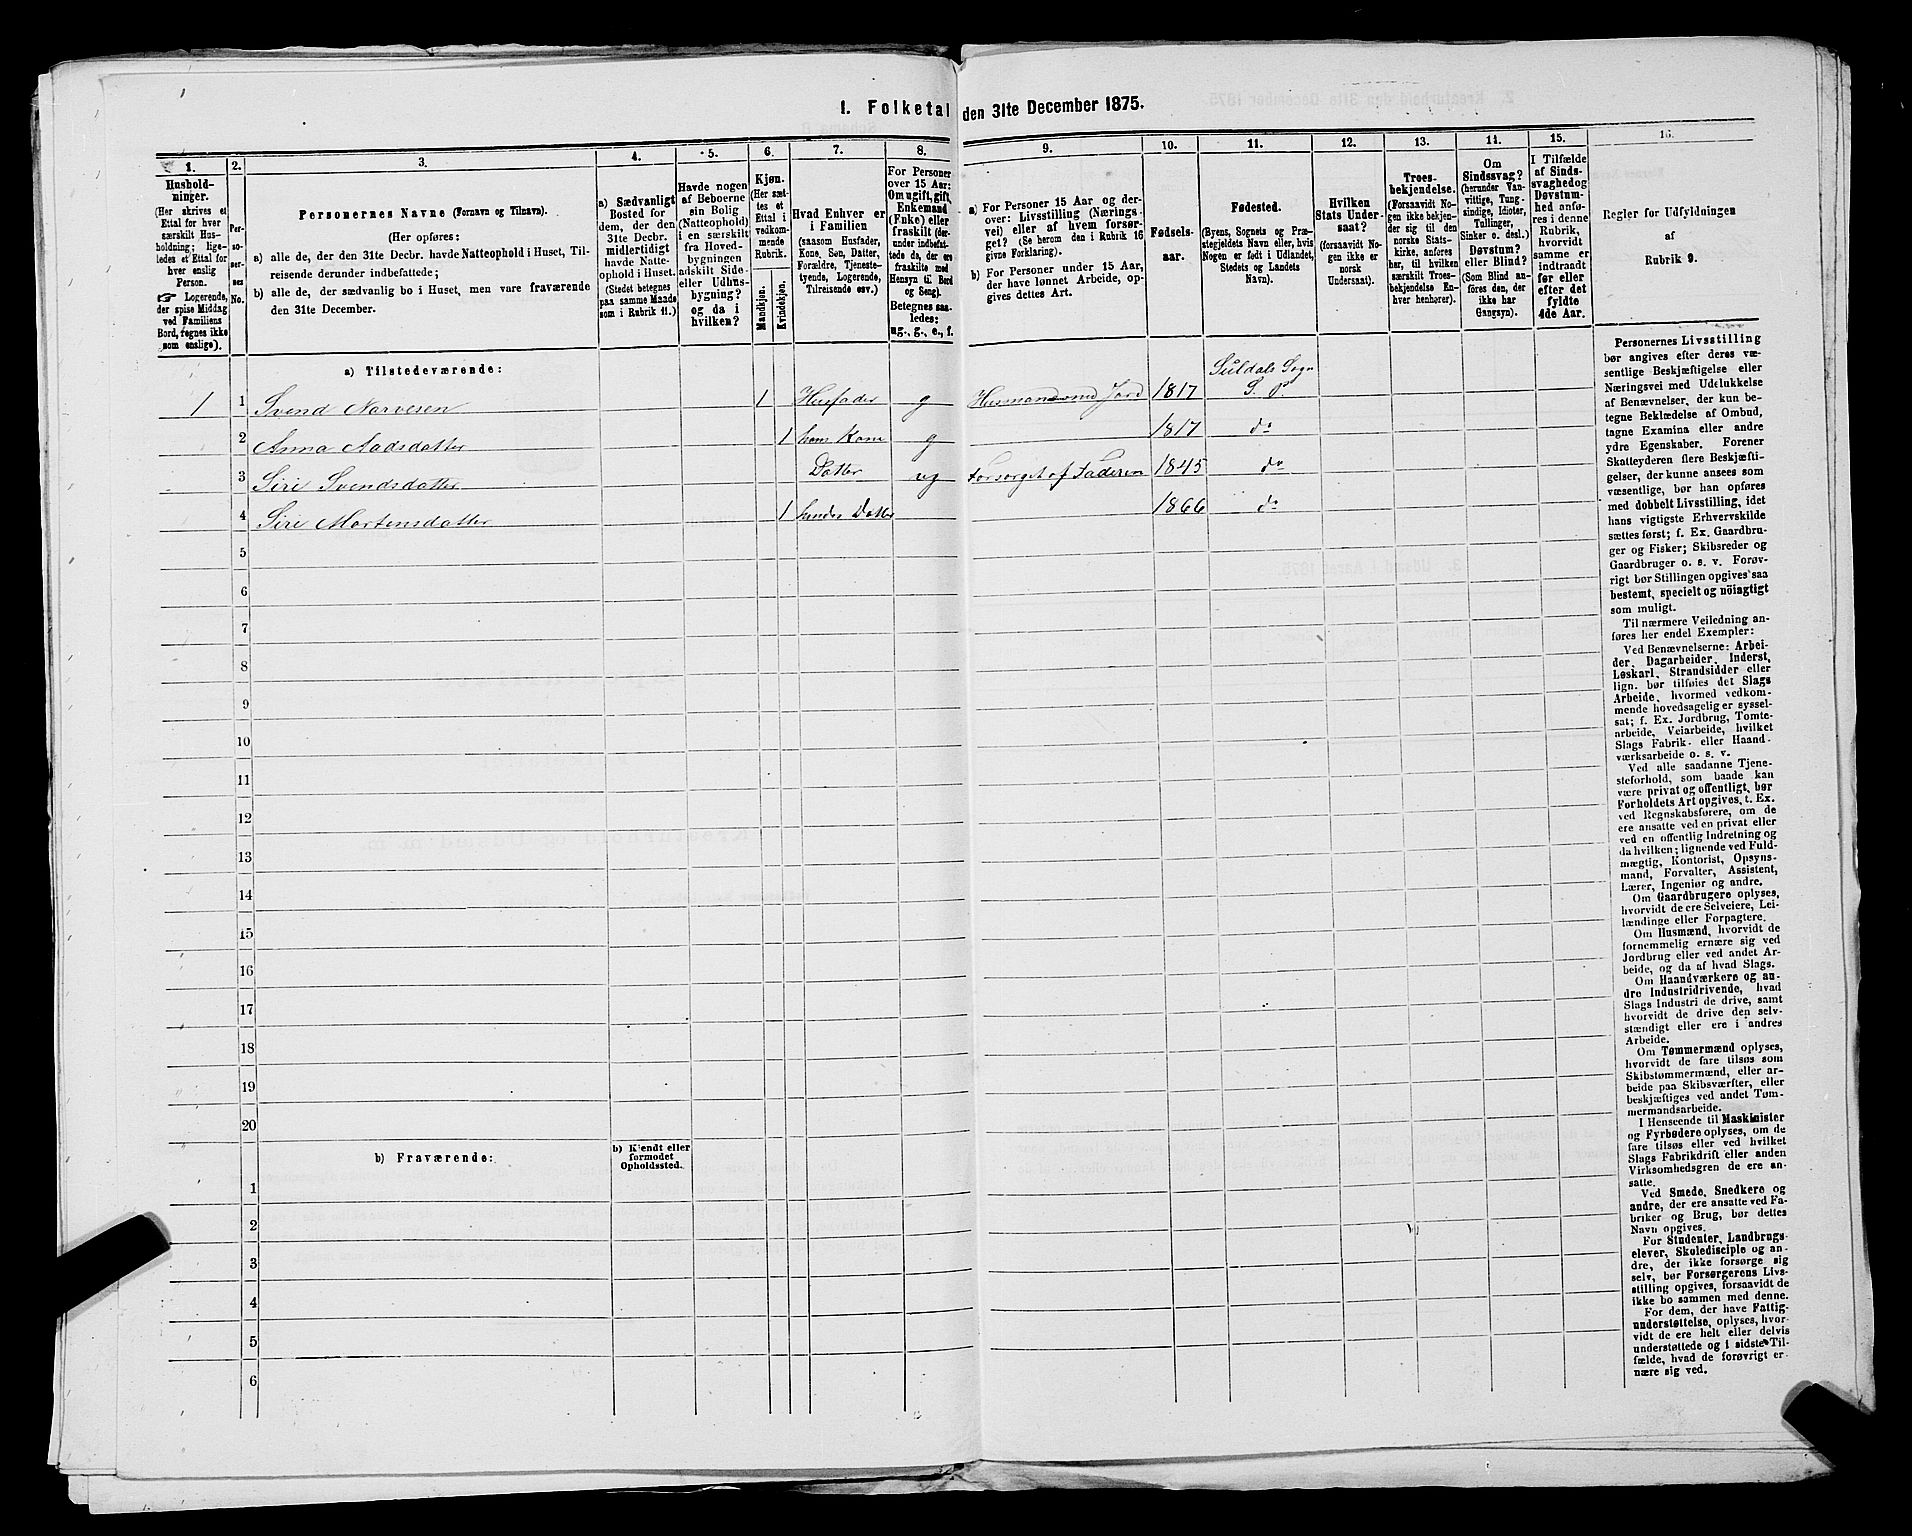 1. Folketal den 31te December 1875.
1. 2. 3. 4. 5. 6. 7. 8. 9. 10. 11. 12. 13. 14. 15. 16.
Hushold-
ninger.
(Her skrives et
Ettal for hver
særskilt Hus-
holdning; lige-
ledes et Ettal for
hver enslig
Person.
☞ Logerende,
der spise Middag
ved Familiens
Bord, regnes ikke
som enslige).
Per-
so-
ner-
nes
No.
Personernes Navne (Fornavn og Tilnavn).
(Her opføres:
a) alle de, der den 31te Decbr. havde Natteophold i Huset, Til-
reisende derunder indbefattede;
b) alle de, der sædvanlig bo i Huset, men vare fraværende
den 31te December.
a) Sædvanligt
Bosted for
dem, der den
31te Decbr.
midlertidigt
havde Natte-
ophold i Huset.
(Stedet betegnes
paa samme Maade
som i Rubrik 11.)
Havde nogen
af Beboerne
sin Bolig
(Natteophold)
i en særskilt
fra Hoved-
bygningen
adskilt Side-
eller Udhus-
bygning?
og da i
hvilken?
Kjøn.
(Her sæt-
tes et
Ettal i
vedkom-
mende
Rubrik.
Mandkjøn.
Kvindekjøn.
Hvad Enhver er
i Familien
(saasom Husfader,
Kone, Søn, Datter,
Forældre, Tjeneste-
tyende, Logerende,
Tilreisende osv.)
For Personer
over 15 Aar:
Om ugift, gift,
Enkemand
(Enke) eller
fraskilt (der-
under indbefat-
tede de, der ere
fraskilte med
Hensyn til Bord
og Seng).
Betegnes saa-
ledes:
ug., g., e., f.
a) For Personer 15 Aar og der-
over: Livsstilling (Nærings-
vei) eller af hvem forsør-
get? (Se herom den i Rubrik 16
givne Forklaring).
b) For Personer under 15 Aar,
der have lønnet Arbeide, op-
gives dettes Art.
Fødsels-
aar.
Fødested.
(Byens, Sognets og Præ-
stegjeldets Navn eller, hvis
Nogen er født i Udlandet,
Stedets og Landets
Navn).
Hvilken
Stats Under-
saat?
(forsaavidt No-
gen ikke er
norsk
Undersaat).
Troes-
bekjendelse.
(Forsaavidt No-
gen ikke bekjen-
der sig til den
norske Stats-
kirke, anføres
her, til hvilken
særskilt Troes-
bekjendelse En-
hver henhører).
Om
Sindssvag?
(herunder Van-
vittige, Tung-
sindige, Idioter,
Tullinger,
Sinker o. desl.)
Døvstum?
eller Blind?
(Som Blind an-
føres den, der
ikke har
Gangsyn).
I Tilfælde
af Sinds-
svaghed og
Døvstum-
hed anfø-
res i denne
Rubrik,
hvorvidt
samme er
indtraadt
før eller
efter det
fyldte
4de Aar.
Regler for Udfyldningen
af
Rubrik 9.
a) Tilstedeværende:
1 1 Svend Narvesen 1 Husfader g Husmand med Jord 1817 Suldals Sogn
S. P.
2 Anna Aadsdatter 1 hans Kone g 1817 do
3 Siri Svendsdatter Datter ug Forsørget af Faderen 1845 do
4 Siri Mortensdatter 1 hendes Datter 1866 do
5
6
7
8
9
10
11
12
13
14
15
16
17
18
19
20
b) Fraværende:
b) Kjendt eller
formodet
Opholdssted.
1
2
3
4
5
6
Personernes Livsstilling
bør angives efter deres væ-
sentlige Beskjæftigelse eller
Næringsvei med Udelukkelse
af Benævnelser, der kun be-
tegne Beklædelse af Ombud,
tagne Examina eller andre
ydre Egenskaber. Forener
Skatteyderen flere Beskjæfti-
gelser, der kunne ansees som
væsentlige, bør han opføres
med dobbelt Livsstilling, idet
hans vigtigste Erhvervskilde
sættes først; f. Ex. Gaardbru-
ger og Fisker; Skibsreder og
Gaardbruger o. s. v. Forøv-
rigt bør Stillingen opgives saa
bestemt, specielt og nøiagtigt
som muligt.
Til nærmere Veiledning an-
føres her endel Exempler:
Ved Benævnelserne: Arbei-
der, Dagarbeider, Inderst,
Løskarl, Strandsidder eller
lign. bør tilføies det Slags
Arbeide, hvormed vedkom-
mende hovedsagelig er syssel-
sat; f. Ex. Jordbrug, Tomte-
arbeide, Veiarbeide, hvilket
Slags Fabrik- eller Haand-
værksarbeide o. s. v.
Ved alle saadanne Tjene-
steforhold, som baade kan
være privat og offentligt, bør
Forholdets Art opgives, t. Ex.
ved Regnskabsførere, om de
ere ansatte ved en privat eller
ved en offentlig Indretning og
da hvilken; lignende ved Fuld-
mægtig, Kontorist, Opsyns-
mand, Forvalter, Assistent,
Lærer, Ingeniør og andre.
Om Gaardbrugere oplyses,
hvorvidt de ere Selveiere, Lei-
lændinge eller Forpagtere.
Om Husmænd, hvorvidt de
fornemmelig ernære sig ved
Jordbrug eller ved andet Ar-
beide, og da af hvad Slags.
Om Haandværkere og an-
dre Industridrivende, hvad
Slags Industri de drive, samt
hvorvidt de drive den selv-
stændigt eller ere i andres
Arbeide.
Om Tømmermænd oplyses,
hvorvidt de fare tilsøs som
Skibstømmermænd, eller ar-
beide paa Skibsværfter, eller
beskjæftiges ved andet Tøm-
mermandsarbeide.
I Henseende til Maskinister
og Fyrbødere oplyses, om de
fare tilsøs eller ved hvilket
Slags Fabrikdrift eller anden
Virksomhedsgren de ere an-
satte.
Ved Smede, Snedkere og
andre, der ere ansatte ved Fa-
briker og Brug, bør dettes
Navn opgives.
For Studenter, Landbrugs-
elever, Skoledisciple og an-
dre, der ikke forsørge sig
selv, bør Forsørgerens Livs-
stilling opgives, forsaavidt de
ikke bo sammen med denne.
For dem, der have Fattig-
understøttelse, oplyses, hvor-
vidt de ere helt eller delvis
understøttede og i sidste Til-
fælde, hvad de forøvrigt er-
nære sig ved.